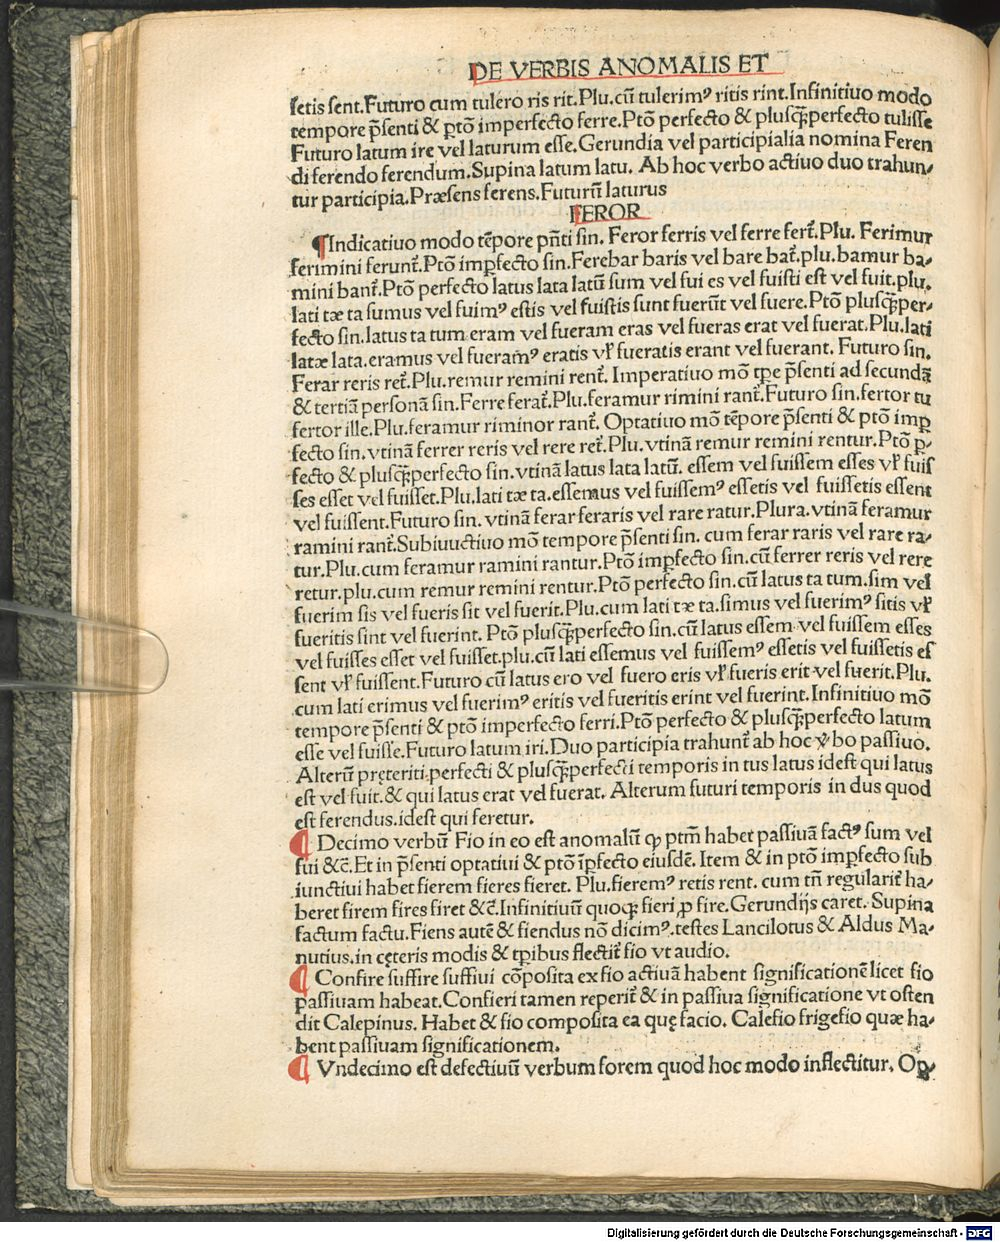 DE VERBIS ANOMALIS ET
ſetis ſent.Futuro cum tulero ris rit.Plu.cū tulerimꝰ ritis rint.Infinitiuo modo
tempore p̄ſenti & ptō imperfecto ferre.Ptō perfecto & pluſq̄ꝑfecto tuliſſe
Futuro latum ire vel laturum eſſe.Gerundia vel participialia nomina Feren
di ferendo ferendum.Supina latum latu. Ab hoc verbo actiuo duo trahun-
tur participia.Præſens ferens.Futurū laturus
FEROR
¶Indicatiuo modo tēpore pn̄ti ſin. Feror ferris vel ferre fert̄.Plu. Ferimur
ferimini ferunt̄.Ptō imꝑfecto ſin.Ferebar baris vel bare bat̄.plu.bamur ba-
mini bant̄.Ptō perfecto latus lata latū ſum vel fui es vel fuiſti eſt vel fuit.plu.
lati tæ ta ſumus vel fuimꝰ eſtis vel fuiſtis ſunt fuerūt vel fuere.Ptō pluſq̄per-
fecto ſin.latus ta tum eram vel fueram eras vel fueras erat vel fuerat.Plu.lati
latæ lata.eramus vel fueramꝰ eratis vł fueratis erant vel fuerant. Futuro ſin.
Ferar reris ret̄.Plu.remur remini rent̄. Imperatiuo mō tꝑe p̄ſenti ad ſecundā
& tertiā perſonā ſin.Ferre ferat̄.Plu.feramur rimini rant̄.Futuro ſin.fertor tu
fertor ille.Plu.feramur riminor rant̄. Optatiuo mō tēpore p̄ſenti & ptō imꝑ
fecto ſin.vtinā ferrer reris vel rere ret̄.Plu.vtinā remur remini rentur.Ptō ꝑ-
fecto & pluſq̄ꝑfecto ſin.vtinā latus lata latū. eſſem vel fuiſſem eſſes vł fuiſ
ſes eſſet vel fuiſſet.Plu.lati tæ ta.eſſemus vel fuiſſemꝰ eſſetis vel fuiſſetis eſſent
vel fuiſſent.Futuro ſin. vtinā ferar feraris vel rare ratur.Plura.vtinā feramur
ramini rant̄.Subiuuctiuo mō tempore p̄ſenti ſin. cum ferar raris vel rare ra-
tur.Plu.cum feramur ramini rantur.Ptō imꝑfecto ſin.cū ferrer reris vel rere
retur.plu.cum remur remini rentur.Ptō perfecto ſin.cū latus ta tum.ſim vel
fuerim ſis vel fueris ſit vel fuerit.Plu.cum lati tæ ta.ſimus vel fuerimꝰ ſitis vł
fueritis ſint vel fuerint. Ptō pluſq̄ꝑfecto ſin.cū latus eſſem vel fuiſſem eſſes
vel fuiſſes eſſet vel fuiſſet.plu.cū lati eſſemus vel fuiſſemꝰ eſſetis vel fuiſſetis eſ
ſent vł fuiſſent.Futuro cū latus ero vel fuero eris vł fueris erit vel fuerit.Plu.
cum lati erimus vel fuerimꝰ eritis vel fueritis erint vel fuerint.Infinitiuo mō
tempore p̄ſenti & ptō imperfecto ferri.Ptō perfecto & pluſq̄ꝑfecto latum
eſſe vel fuiſſe.Futuro latum iri.Duo participia trahunt̄ ab hoc v̄bo paſſiuo.
Alterū pręteriti.perfecti & pluſq̄ꝑfecti temporis in tus latus ideſt qui latus
eſt vel fuit.& qui latus erat vel fuerat. Alterum futuri temporis in dus quod
eſt ferendus.ideſt qui feretur.
¶ Decimo verbū Fio in eo eſt anomalū ꝙ ptm̄ habet paſſiuā factꝰ ſum vel
fui &c̄.Et in p̄ſenti optatiui & ptō īꝑfecto eiuſdē. Item & in ptō imꝑfecto ſub
iunctiui habet fierem fieres fieret. Plu.fieremꝰ retis rent. cum tn̄ regularit̄ ha-
beret firem fires firet &c̄.Infinitiuū quoqꝫ fieri ꝓ fire.Gerundijs caret. Supina
factum factu.Fiens autē & fiendus nō dicimꝰ.teſtes Lancilotus & Aldus Ma-
nutius.in cęteris modis & tꝑibus flectit̄ fio vt audio.
¶ Confire ſuffire ſuffiui cōpoſita ex fio actiuā habent ſignificationē licet fio
paſſiuam habeat.Confieri tamen reperit̄ & in paſſiua ſignificatione vt oſten
dit Calepinus. Habet & fio compoſita ea quę facio. Calefio frigefio quæ ha-
bent paſſiuam ſignificationem.
¶ Vndecimo eſt defectiuū verbum forem quod hoc modo inflectitur. Op-
Digitalisierung gefördert durch die Deutsche Forschungsgemeinschaft - DFG